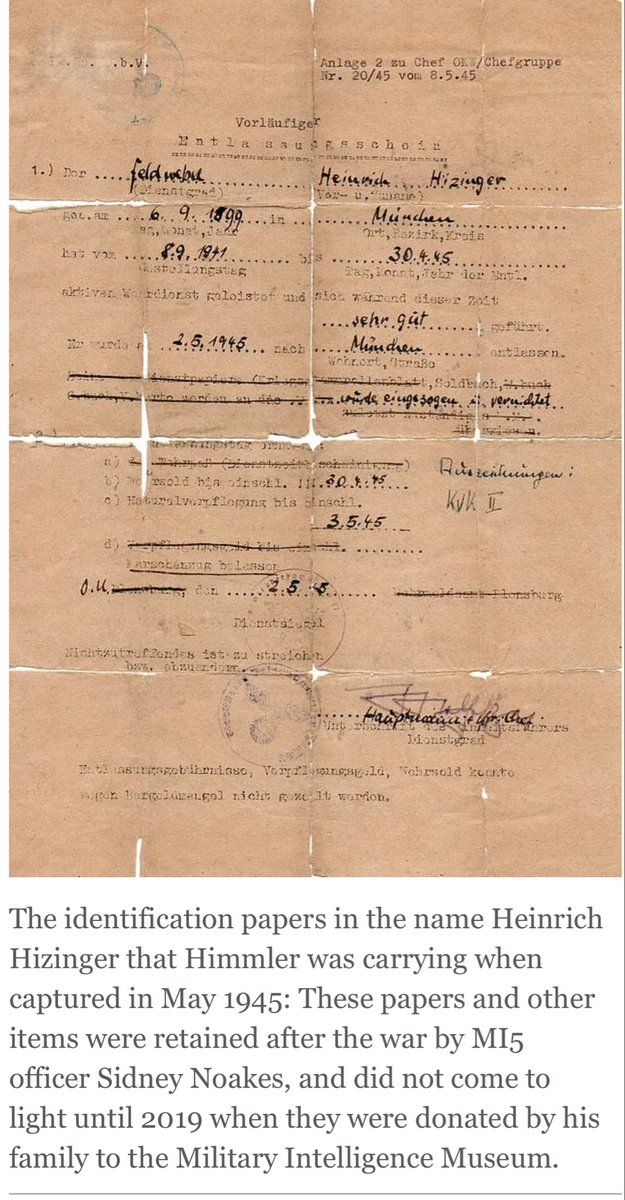 .b.V.
Anlage 2 zu Chef OKW/Chefgruppe
Nr. 20/45 vom 8.5.45
Vorläufiger
Entlassungsschein
1.) Der .... Feldwebel ........ Heinrich Hizinger
(Dienstgrad) (Vor- u. Zuname)
geb.am .... 6. 9. 1899 .. in ...... München ........
Tag,Monat,Jahr Ort,Bezirk,Kreis
hat vom ..... 8.9. 1941 ....... bis ....... 30.4.45 ........
Einstellungstag Tag,Monat,Jahr der Entl.
aktiven Wehrdienst geleistet und sich während dieser Zeit
.... sehr gut ..... geführt.
Er wurde am .. 2.5.1945 ... nach ... München ... entlassen.
Wohnort,Straße
Soldbuch, W.buch
.... wurde eingezogen u. vernichtet
überwiesen.
a) Wehrpaß (Dienstzeitbescheinigung)
b) Wehrsold bis einschl. 30.4.45
Auszeichnungen:
c) Naturalverpflegung bis einschl.
KVK II
3.5.45
d) Verpflegungsgeld bis einschl. ..........
Marschanzug belassen
O.U. Flensburg, den ...... 2.5.45 Wehrmeldeamt Flensburg
Dienstsiegel
Nichtzutreffendes ist zu streichen
bzw. abzuändern.
..... Hauptmann u.
Unterschrift des Einheitsführers
Dienstgrad
Entlassungsgebührnisse, Verpflegungsgeld, Wehrsold konnte
wegen Bargeldmangel nicht gezahlt werden.
The identification papers in the name Heinrich
Hizinger that Himmler was carrying when
captured in May 1945: These papers and other
items were retained after the war by MI5
officer Sidney Noakes, and did not come to
light until 2019 when they were donated by his
family to the Military Intelligence Museum.